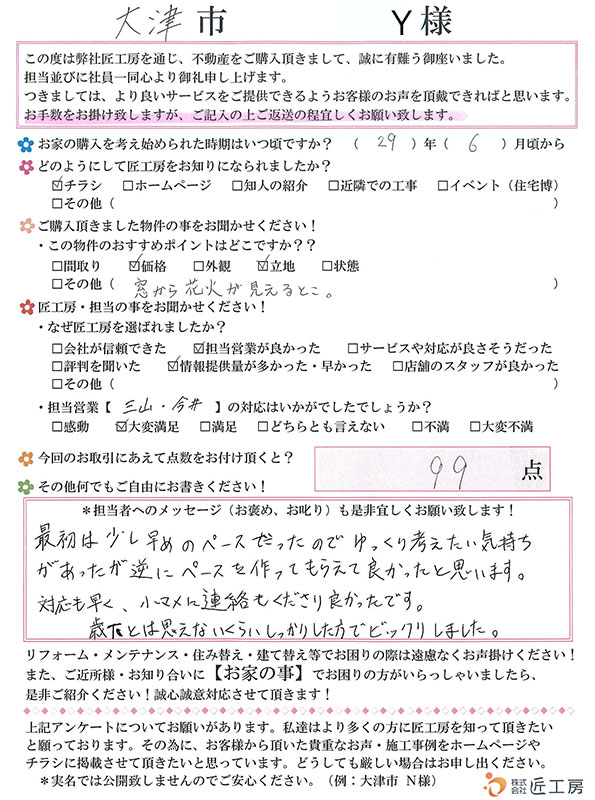 大津市 Y様
この度は弊社匠工房を通じ、不動産をご購入頂きまして、誠に有難う御座いました。
担当並びに社員一同心より御礼申し上げます。
つきましては、より良いサービスをご提供できるようお客様のお声を頂戴できればと思います。
お手数をお掛け致しますが、ご記入の上ご返送の程宜しくお願い致します。
お家の購入を考え始められた時期はいつ頃ですか？（ 29 ）年（ 6 ）月頃から
どのようにして匠工房をお知りになられましたか？
☑チラシ □ホームページ □知人の紹介 □近隣での工事 □イベント（住宅博）
□その他（ ）
ご購入頂きました物件の事をお聞かせください！
・この物件のおすすめポイントはどこですか？？
□間取り ☑価格 □外観 ☑立地 □状態
□その他（ 窓から花火が見えるとこ。 ）
匠工房・担当の事をお聞かせください！
・なぜ匠工房を選ばれましたか？
□会社が信頼できた ☑担当営業が良かった □サービスや対応が良さそうだった
□評判を聞いた ☑情報提供量が多かった・早かった □店舗のスタッフが良かった
□その他（ ）
・担当営業【 三山・今井 】の対応はいかがでしたでしょうか？
□感動 ☑大変満足 □満足 □どちらとも言えない □不満 □大変不満
今回のお取引にあえて点数をお付け頂くと？ 99 点
その他何でもご自由にお書きください！
＊担当者へのメッセージ（お褒め、お叱り）も是非宜しくお願い致します！
最初は少し早めのペースだったのでゆっくり考えたい気持ち
があったが逆にペースを作ってもらえて良かったと思います。
対応も早く、小マメに連絡もくださり良かったです。
歳下とは思えないくらいしっかりした方でビックリしました。
リフォーム・メンテナンス・住み替え・建て替え等でお困りの際は遠慮なくお声掛けください！
また、ご近所様・お知り合いに【お家の事】でお困りの方がいらっしゃいましたら、
是非ご紹介ください！誠心誠意対応させて頂きます！
上記アンケートについてお願いがあります。私達はより多くの方に匠工房を知って頂きたい
と願っております。その為に、お客様から頂いた貴重なお声・施工事例をホームページや
チラシに掲載させて頂きたいと思っています。どうしても厳しい場合はお申し出ください。
＊実名では公開致しませんのでご安心ください。（例：大津市 N様）
株式会社 匠工房